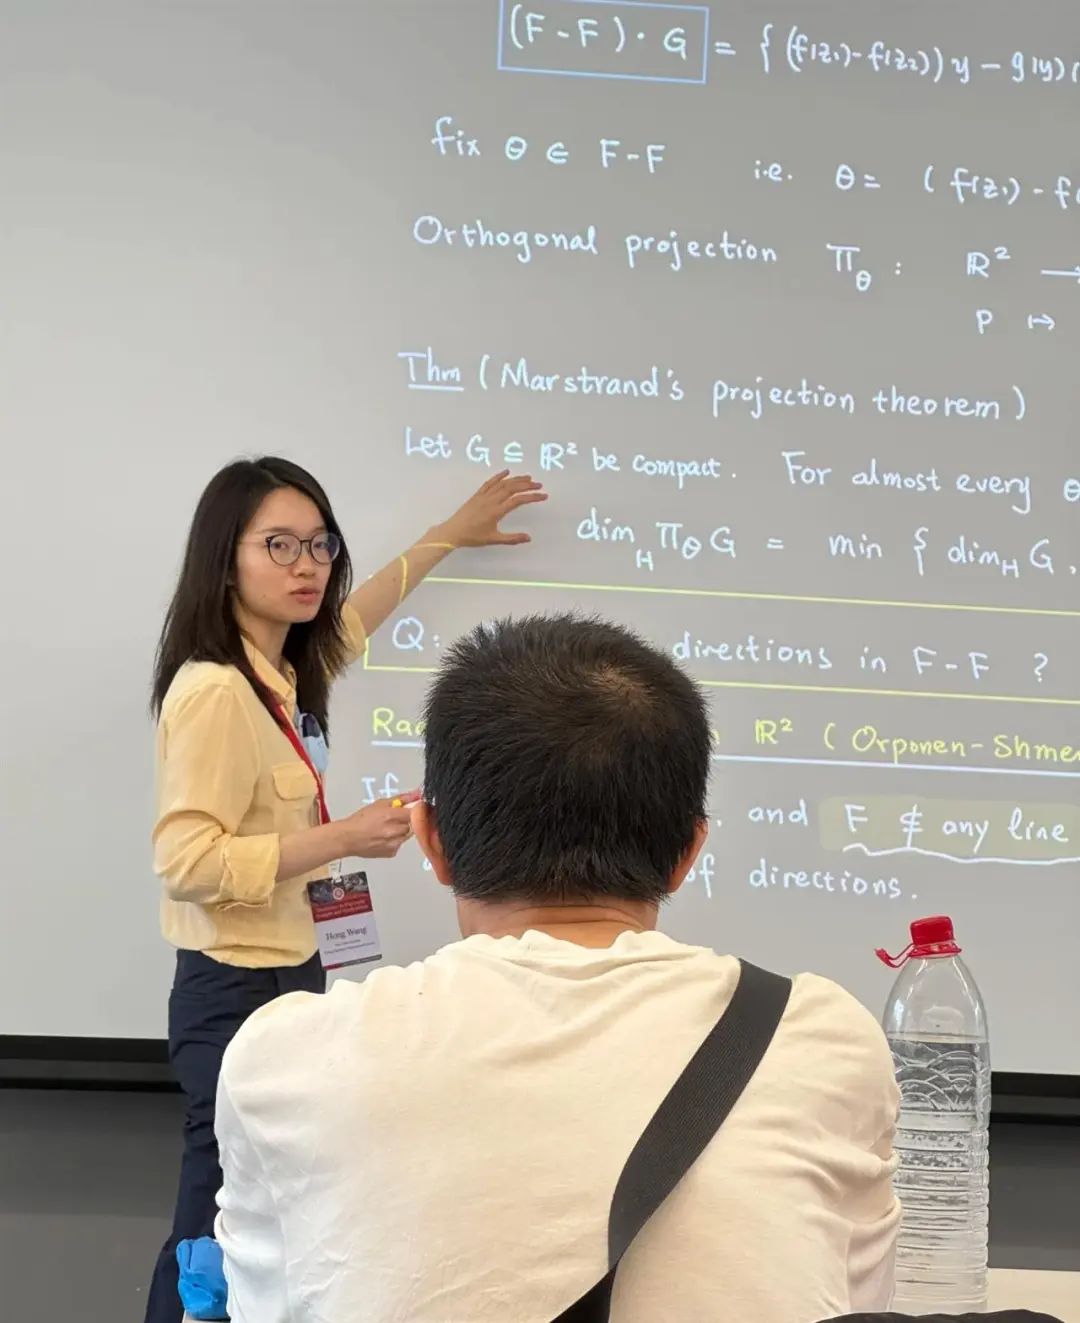 (F-F)·G = { (f(z₁)-f(z₂)) y - g(y)
fix θ ∈ F-F i.e. θ = ( f(z₁) -
Orthogonal projection π_θ : ℝ² →
p ↦
Thm (Marstrand's projection theorem)
Let G ⊆ ℝ² be compact. For almost every θ
dim_H π_θ G = min { dim_H G,
Q: directions in F-F ?
ℝ² ( Orponen-
If and F ⊄ any line
of directions.
Hong Wang